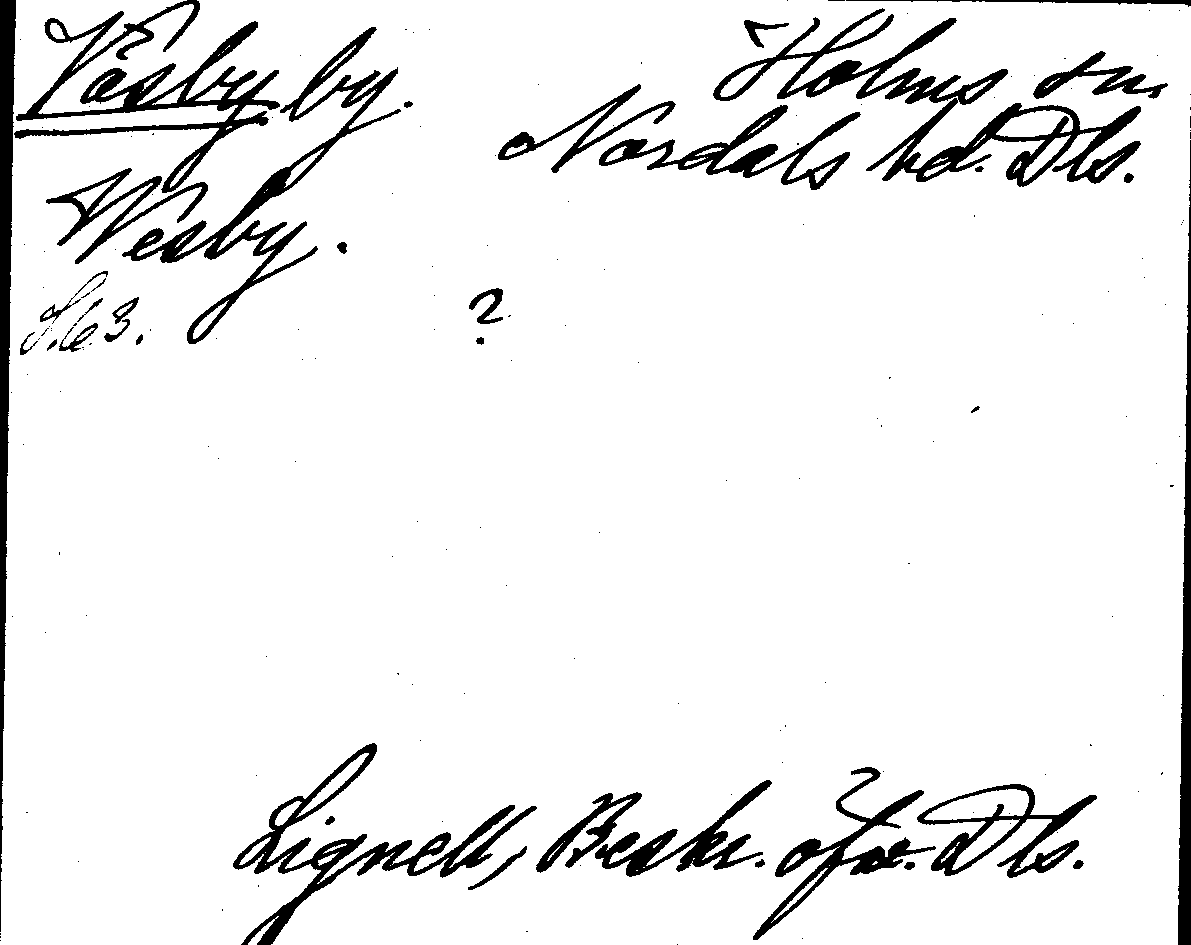 Väsby by.
Holms sn.
Nordals hd. Dls.
Wesby.
S.63.
?
Lignell, Beskr. öfv. Dls.